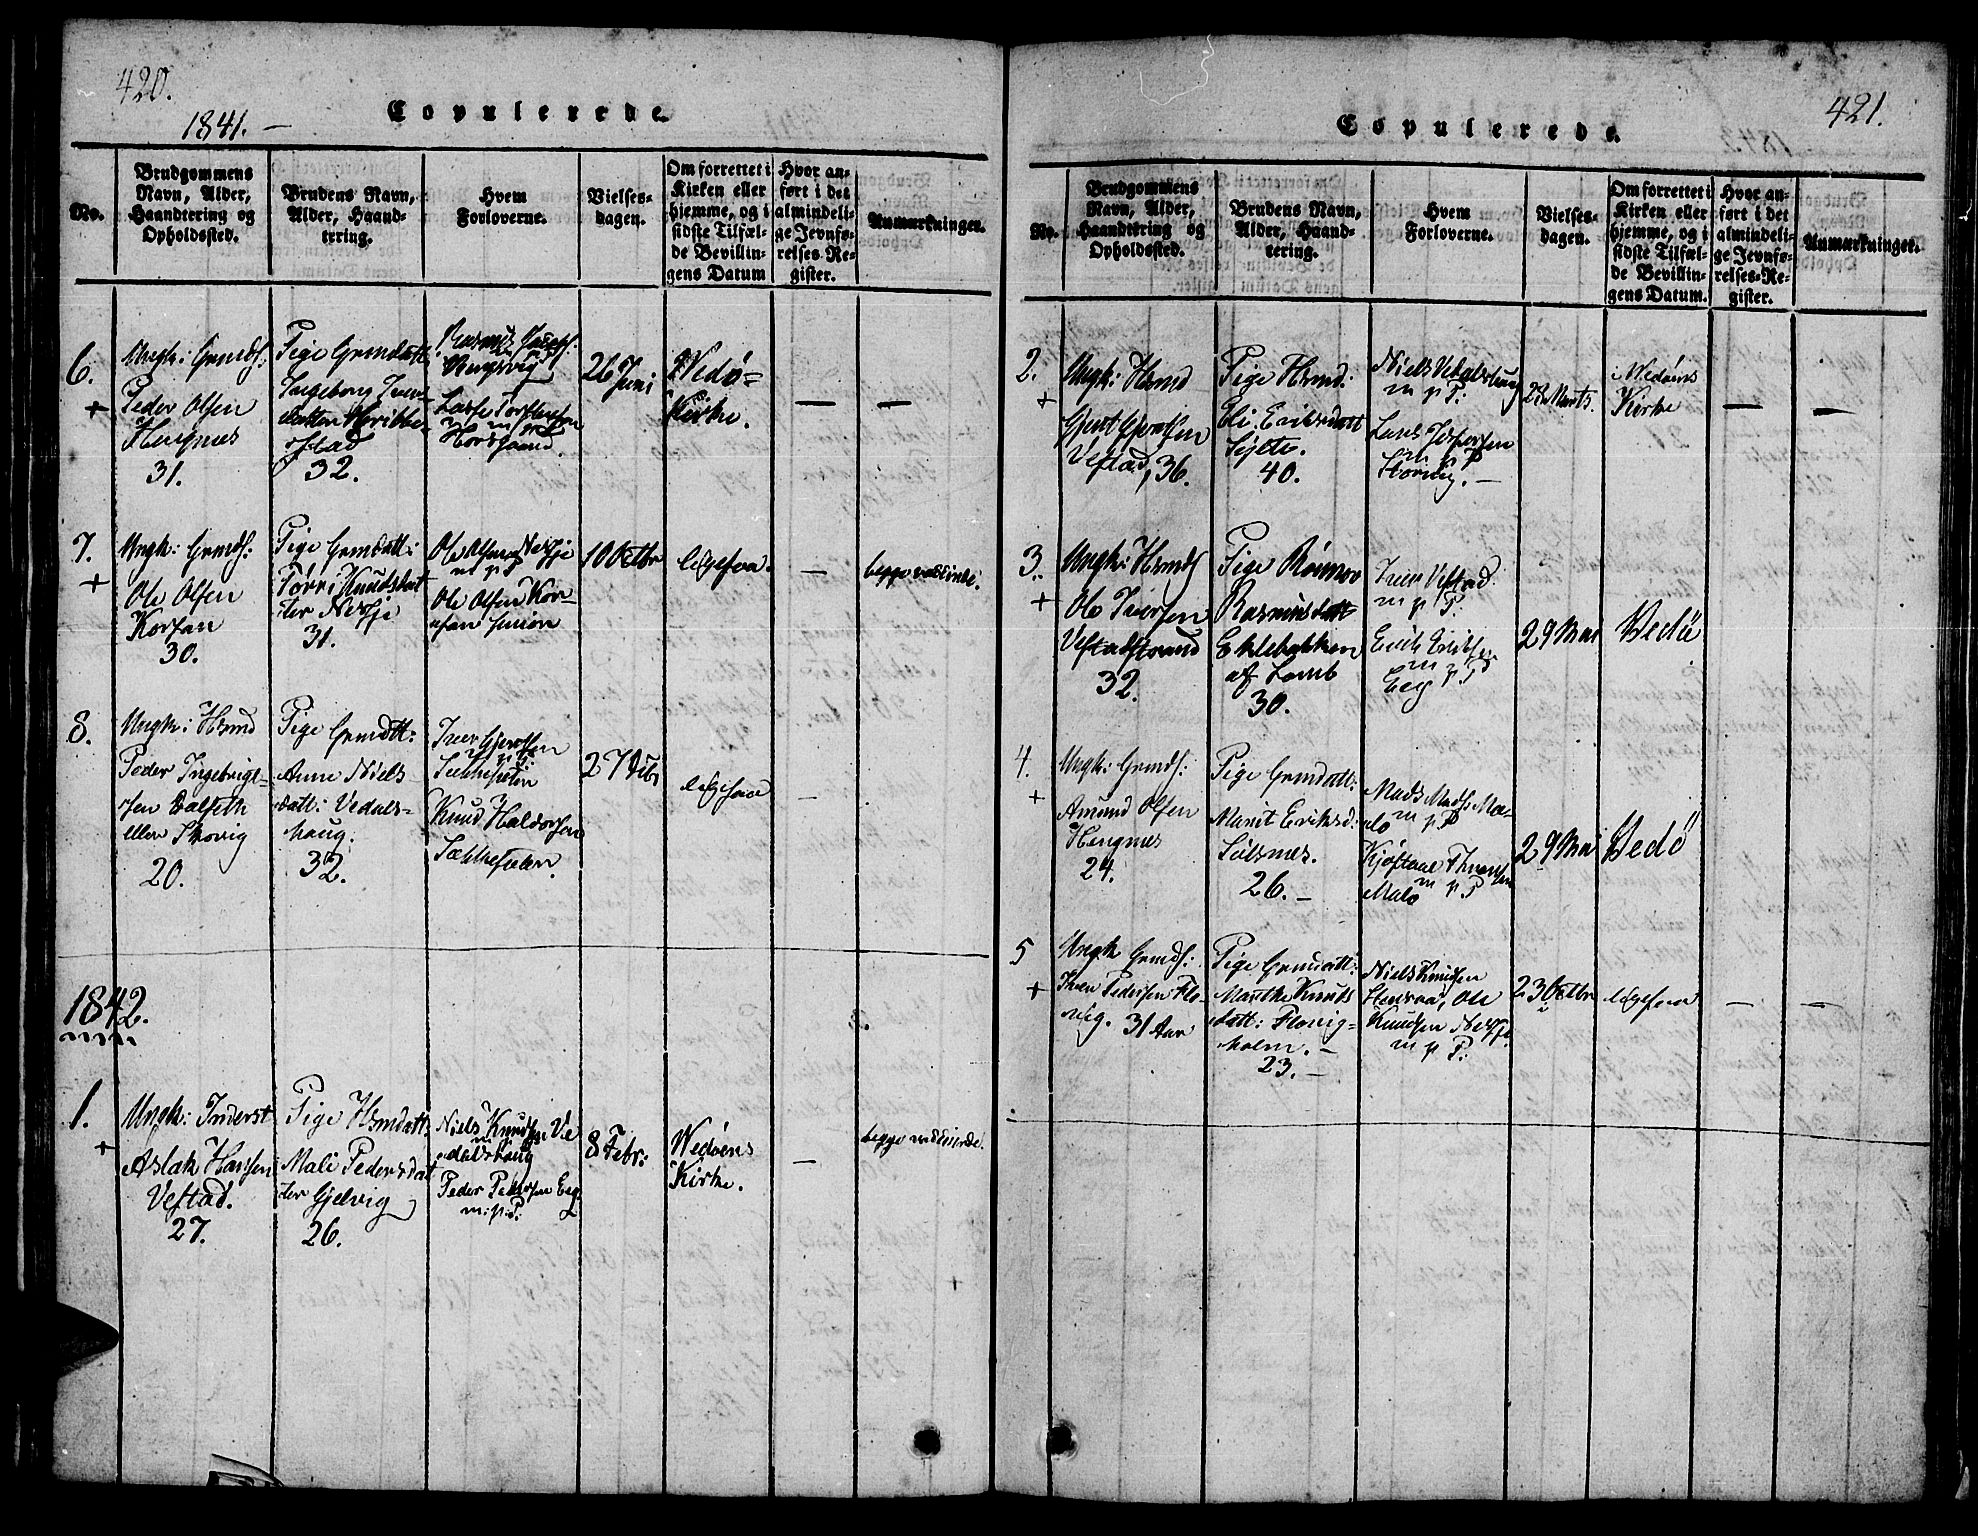 420.
1841. —
Copulerede.
No.
Brudgommens
Navn, Alder,
Haandtering og
Opholdssted.
Brudens Navn,
Alder, Haand-
tering.
Hvem
Forloverne.
Vielses-
dagen.
Om forrettet i
Kirken eller
hjemme, og i
sidste Tilfæl-
de Bevillin-
gens Datum
Hvor an-
ført i det
almindeli-
ge Jevnfø-
relses-Re-
gister.
Anmærkninger.
6.
+
Ungk: Grmds:
Peder Olsen
Hengnes
31.
Pige Grmdatt:
Ingeborg Iver-
datter
32.
Lasse
26 Juni
Wedø-
Kirke.
—
—
7.
+
Ungk: Grmds:
Ole Olsen
Korsan
30.
Pige Grmdatt:
Tørri Knudsdat
ter Nesje
31.
Ole Olsen Nesje
m p P
Ole Olsen Kor-
san junior
10 Octbr
ligesaa.
—
begge vaccinerede.
8.
Ungk: Hsmd
Peder Ingebrigt-
sen Dalseth
eller Skovig
20.
Pige Grmdtt:
Anne Niels
datt: Vedals-
houg.
32.
Iver
Knud Haldorsen
27
ligesaa
—
1842.
1.
+
Ungk: Inderst
Aslak Hansen
Vestad.
27.
Pige Hsmdatt:
Mali Pedersdat
ter Gjelvig
26.
Niels Knudsen Ve
dalshoug
Peder Pedersen Eeg
m: p: P:
8 Febr:
Wedøens
Kirke.
—
begge vaccinerede.
421.
Copulerede.
No.
Brudgommens
Navn, Alder,
Haandtering og
Opholdssted.
Brudens Navn,
Alder, Haand-
tering.
Hvem
Forloverne.
Vielses-
dagen.
Om forrettet i
Kirken eller
hjemme, og i
sidste Tilfæl-
de Bevillin-
gens Datum.
Hvor an-
ført i det
almindeli-
ge Jevnfø-
relses-Re-
gister.
Anmærkninger.
2.
+
Ungk: Hsmd
Vestad, 36.
Pige Hsmd:
Eli Eriksdatt
Sylte.
40.
Niels Vedalshoug
m p P:
Lars
m p P
28 Marts.
i Wedøens
Kirke
—
—
3.
+
Ungk: Hsmds
Ole Iversen
Vestadstrand
32.
Pige
Rasmusdatt
Eklebakken
af Lomb
30.
Iver Vestad
m p P:
Erik Eriksen
m p P
Eeg
29 Mai
Vedö
4.
+
Ungk: Grmds:
Amund Olsen
Hengnes
24.
Pige Grmdatt:
Marit Eriksd:
Sølsnes.
26. —
Mads Mads: Ma-
lo m p P
m p P
Malo
29 Mai
Vedö
5
+
Ungk Grmds:
Iver Pedersen Flo-
vig. 31 Aar
Pige Grmdatt:
Marthe Knuds
datt: Flovig-
holm. —
23. —
Niels Knudsen
Ole
Knudsen Nesje
m p P:
23 Octbr
ligesaa
—
—